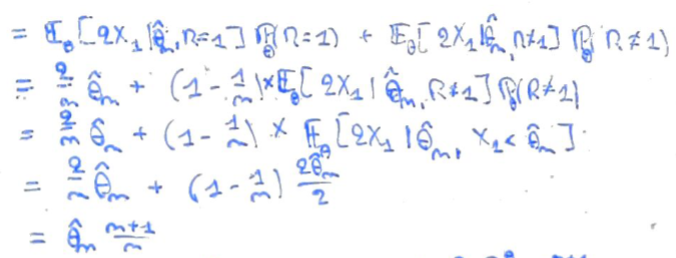 = 𝔼_θ[2X₁|θ̂ₙ, R=1] ℙ_θ(R=1) + 𝔼_θ[2X₁|θ̂ₙ, R≠1] ℙ_θ(R≠1)
= 2/n θ̂ₙ + (1 - 1/n) × 𝔼_θ[2X₁ | θ̂ₙ, R≠1] ℙ_θ(R≠1)
= 2/n θ̂ₙ + (1 - 1/n) × 𝔼_θ[2X₁ | θ̂ₙ, X₁ < θ̂ₙ]
= 2/n θ̂ₙ + (1 - 1/n) 2θ̂ₙ/2
= θ̂ₙ (n+1)/n